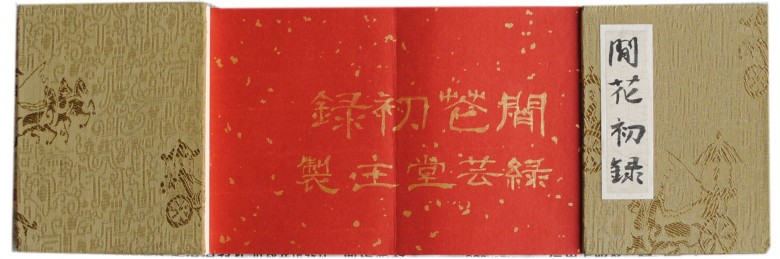 閒花初録
閒花初録
緑芸堂主製